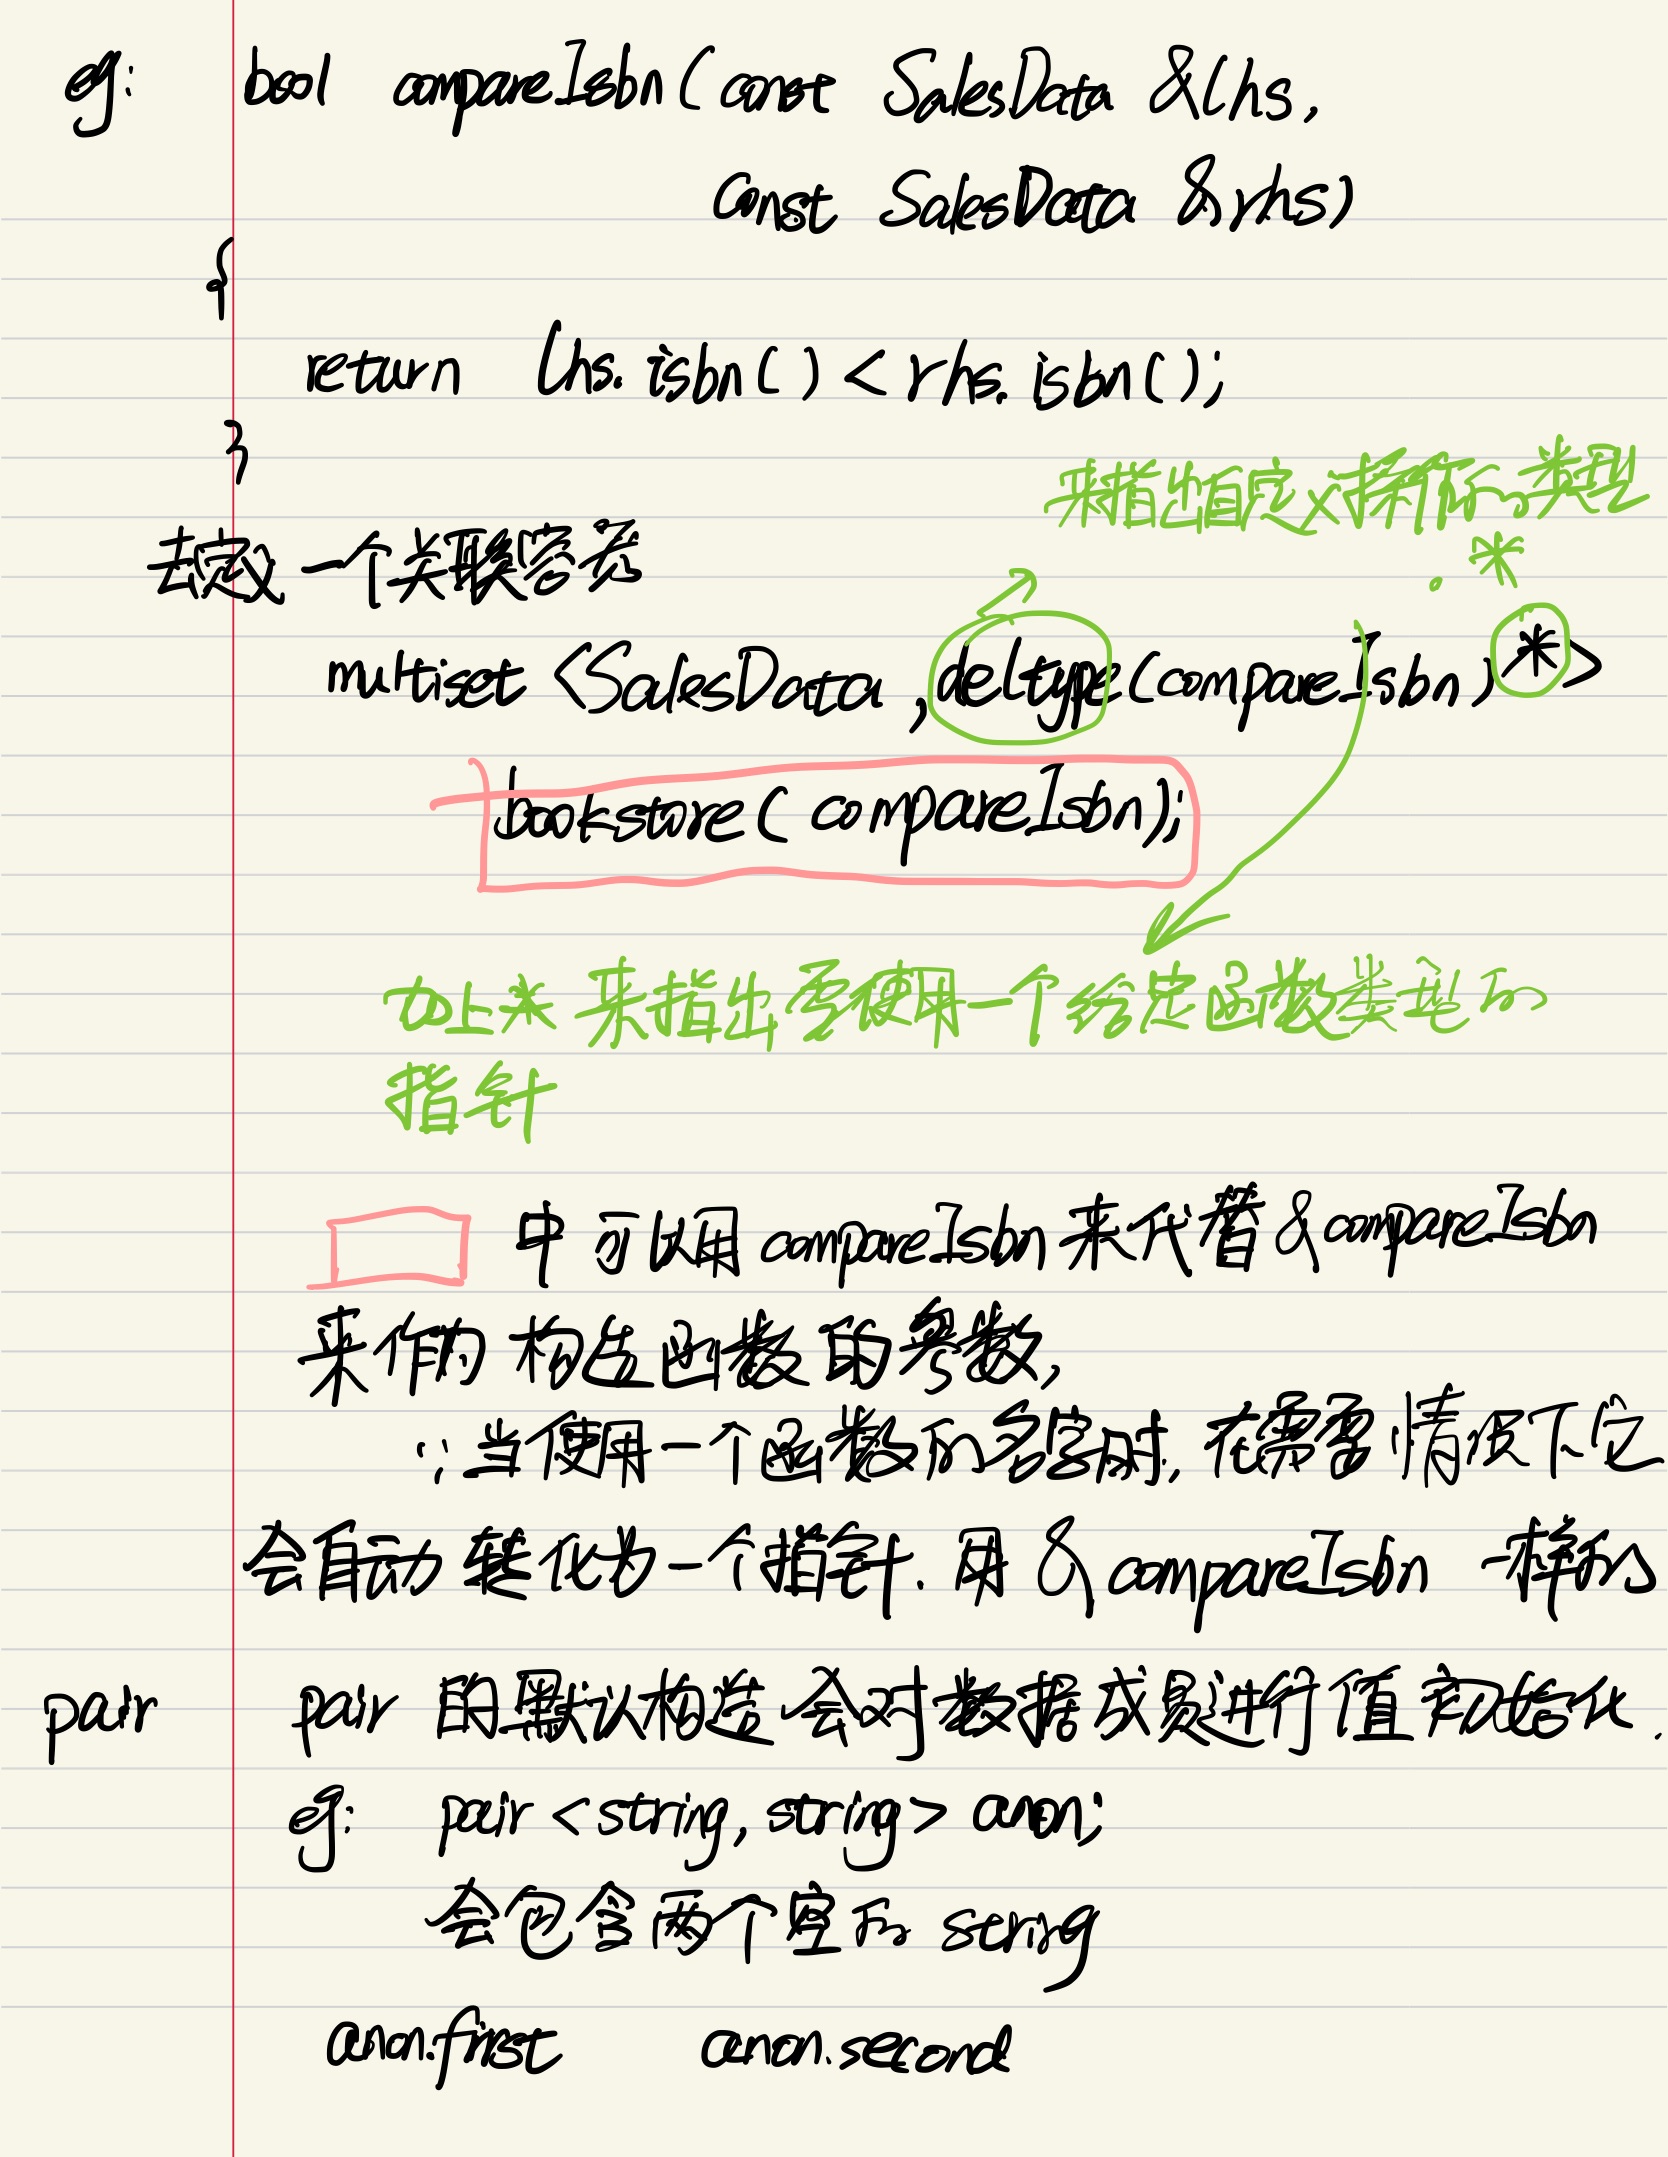 eg: bool compareIsbn(const SalesData &lhs,
const SalesData &rhs)
{
return lhs.isbn() < rhs.isbn();
}
来指出自定义操作的类型
去定义一个关联容器
*
multiset <SalesData, deltype(compareIsbn)*>
bookstore(compareIsbn);
加上* 来指出要使用一个给定函数类型的
指针
中可以用compareIsbn来代替&compareIsbn
来作为构造函数的参数,
∵当使用一个函数的名字时,在需要情况下它
会自动转化为一个指针.用&compareIsbn一样的
pair pair 的默认构造会对数据成员进行值初始化.
eg: pair<string, string> anon;
会包含两个空的string
anon.first anon.second